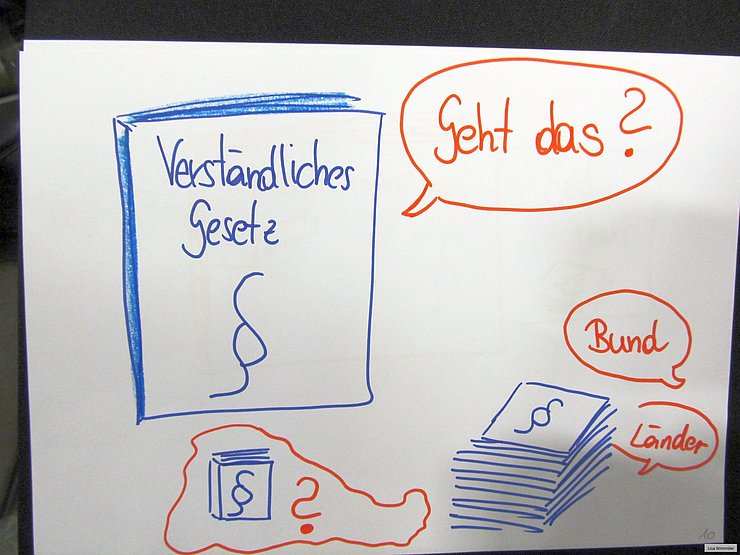 Verständliches
Gesetz
§
Geht das?
Bund
Länder
§
§
?
10
Lisa Wimmler